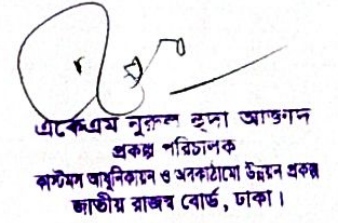 একেএম নুরুল হুদা আজাদ
প্রকল্প পরিচালক
কাস্টমস আধুনিকায়ন ও অবকাঠামো উন্নয়ন প্রকল্প
জাতীয় রাজস্ব বোর্ড, ঢাকা।